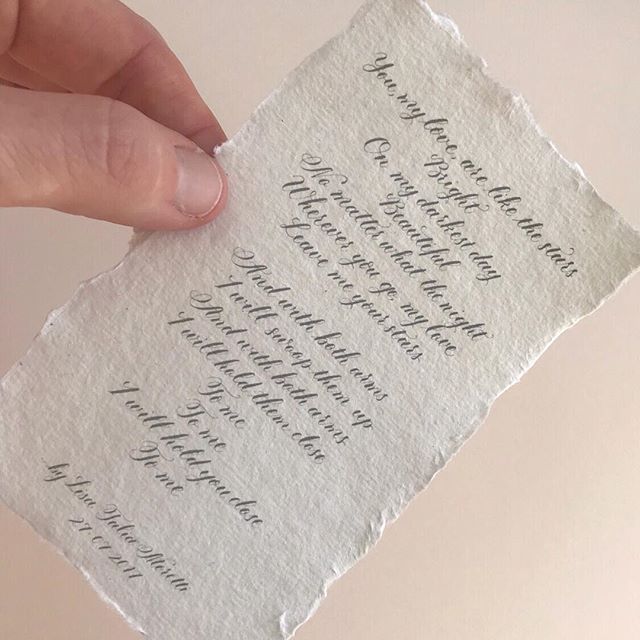 You, my love, are like the stars
Bright
On my darkest day
Beautiful
No matter what the night
Wherever you go my love
Leave me your stars
And with both arms
I will swoop them up
And with both arms
I will hold them close
To me
To me
I will hold you close
To me
by Lisa
27 07 2017